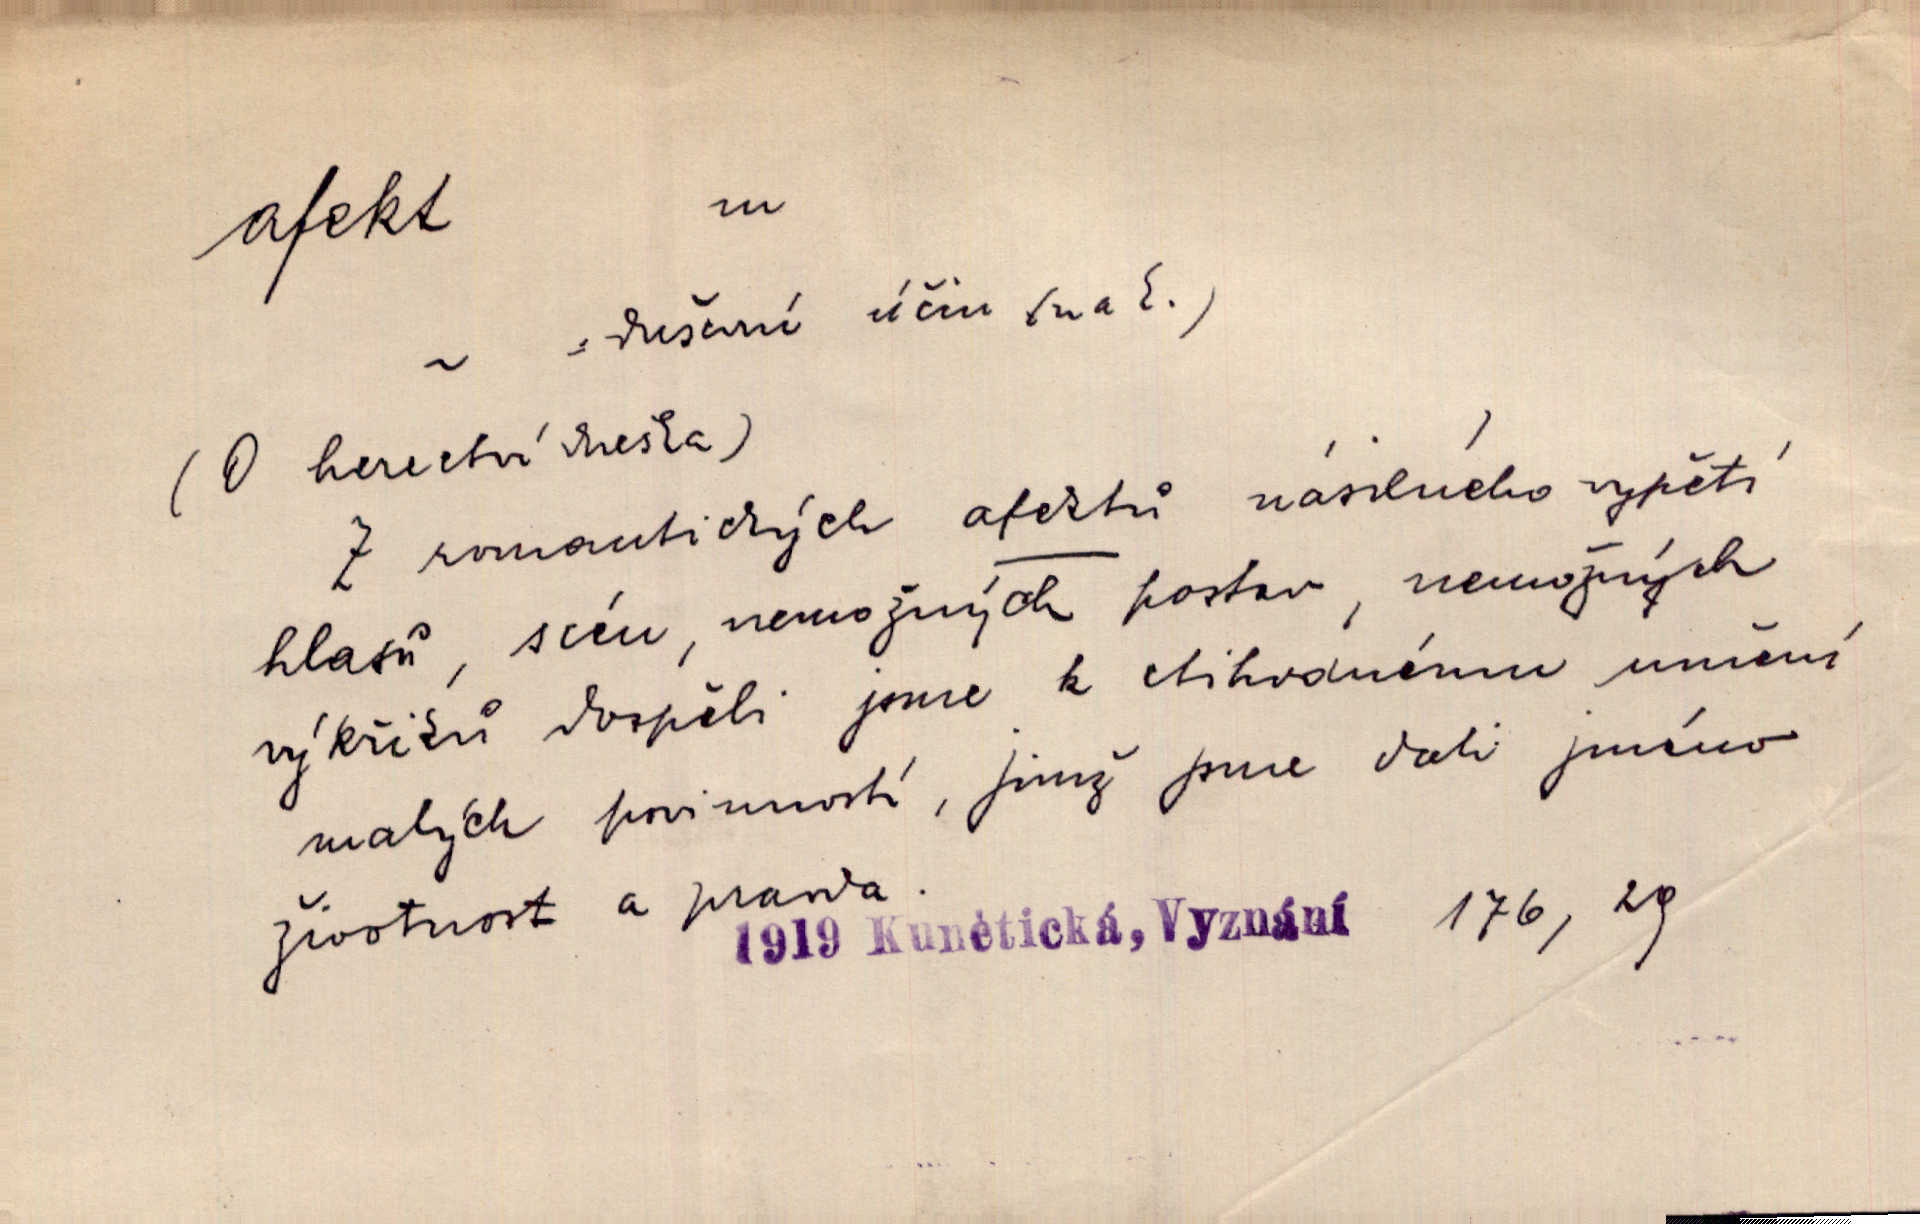 afekt m
~ : duševní účin (na č.)
(O herectví dneška)
Z romantických afektů násilného vypětí
hlasů, scén, nemožných postav, nemožných
výkřiků dospěli jsme k ctihodnému umění
malých povinností, jimž jsme dali jméno
životnost a pravda.
1919 Kunětická, Vyznání 176, 29